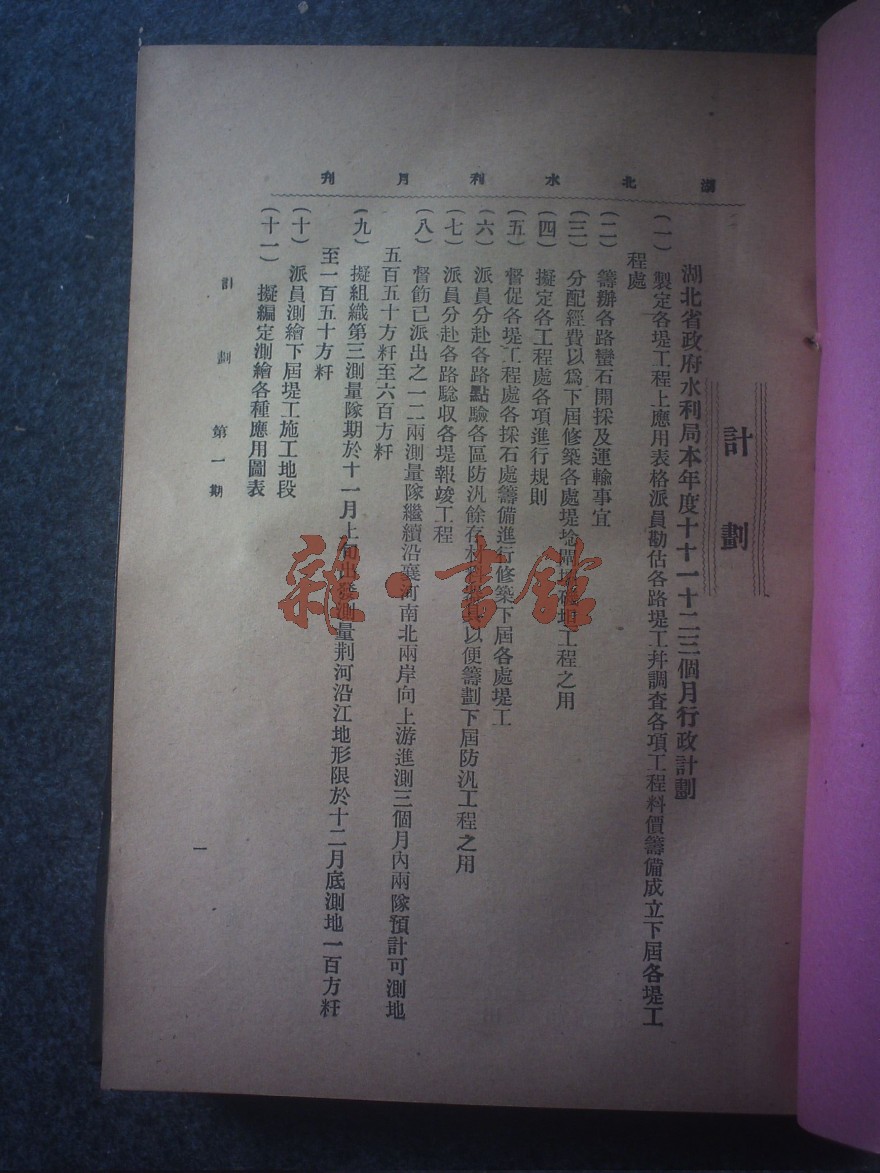 湖北水利月刊
計劃
湖北省政府水利局本年度十十一十二三個月行政計劃
（一）製定各堤工程上應用表格派員勘估各路堤工幷調查各項工程料價籌備成立下屆各堤工
程處
（二）籌辦各路蠻石開採及運輸事宜
（三）分配經費以爲下屆修築各處堤垸閘工程之用
（四）擬定各工程處各項進行規則
（五）督促各堤工程處各採石處籌備進行修築下屆各處堤工
（六）派員分赴各路點驗各區防汎餘存以便籌劃下屆防汎工程之用
（七）派員分赴各路驗收各堤報竣工程
（八）督飭已派出之一二兩測量隊繼續沿襄河南北兩岸向上游進測三個月內兩隊預計可測地
五百五十方粁至六百方粁
（九）擬組織第三測量隊期於十一月上旬出發測量荆河沿江地形限於十二月底測地一百方粁
至一百五十方粁
（十）派員測繪下屆堤工施工地段
（十一）擬編定測繪各種應用圖表
計劃 第一期
一
雜·書館